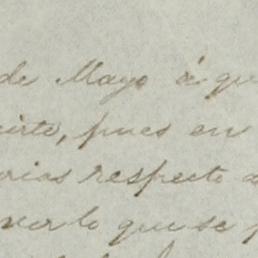 de Mayo á qu
cirte, pues en
rias respecto a
ver lo que se p